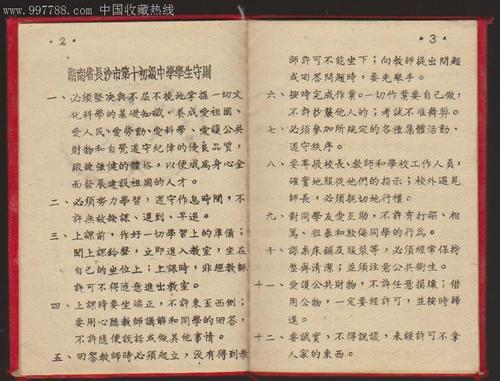 www.997788.com 中国收藏热线
·2·
湖南省長沙市第十初級中學學生守則
一、必須堅决與不屈不撓地掌握一切文
化科學的基礎知識，養成愛祖國、
愛人民、愛勞動、愛科學、愛護公共
財物和自覺遵守紀律的優良品質，
鍛鍊強健的體格，以便成爲身心全
面發展建設祖國的人才。
二、必須努力學習，遵守作息時間，不
許無故按課、遲到、早退。
三、上課前，作好一切學習上的準備；
聞上課鈴聲，立即進入教室，坐在
自己的坐位上；上課時，非經教師
許可不得隨意進出教室。
四、上課時要坐端正，不許東歪西倒；
要用心聽教師講解和同學的回答，
不許隨便說話或做其他事情。
五、回答教師時必須起立，没有得到教
·3·
師許可不能坐下；向教師提出問題
或回答問題時，要先舉手。
六、按時完成作業。一切作業要自己做，
不許抄襲他人的；考試不准舞弊。
七、必須參加所規定的各種集體活動、
遵守秩序。
八、要尊敬校長、教師和學校工作人員，
確實地服從他們的指示；校外遇見
師長，必須親切地行禮。
九、對同學友愛互助，不許有打架、相
駡、粗暴和欺侮同學的行爲。
十、課桌床鋪及服裝等，必須經常保持
整齊清潔；並須注意公共衛生。
十一、愛護公共財物，不許任意損壞；借
用公物，一定要經許可，並按時歸
還。
十二、要誠實，不得說謊，未經許可不拿
人家的東西。